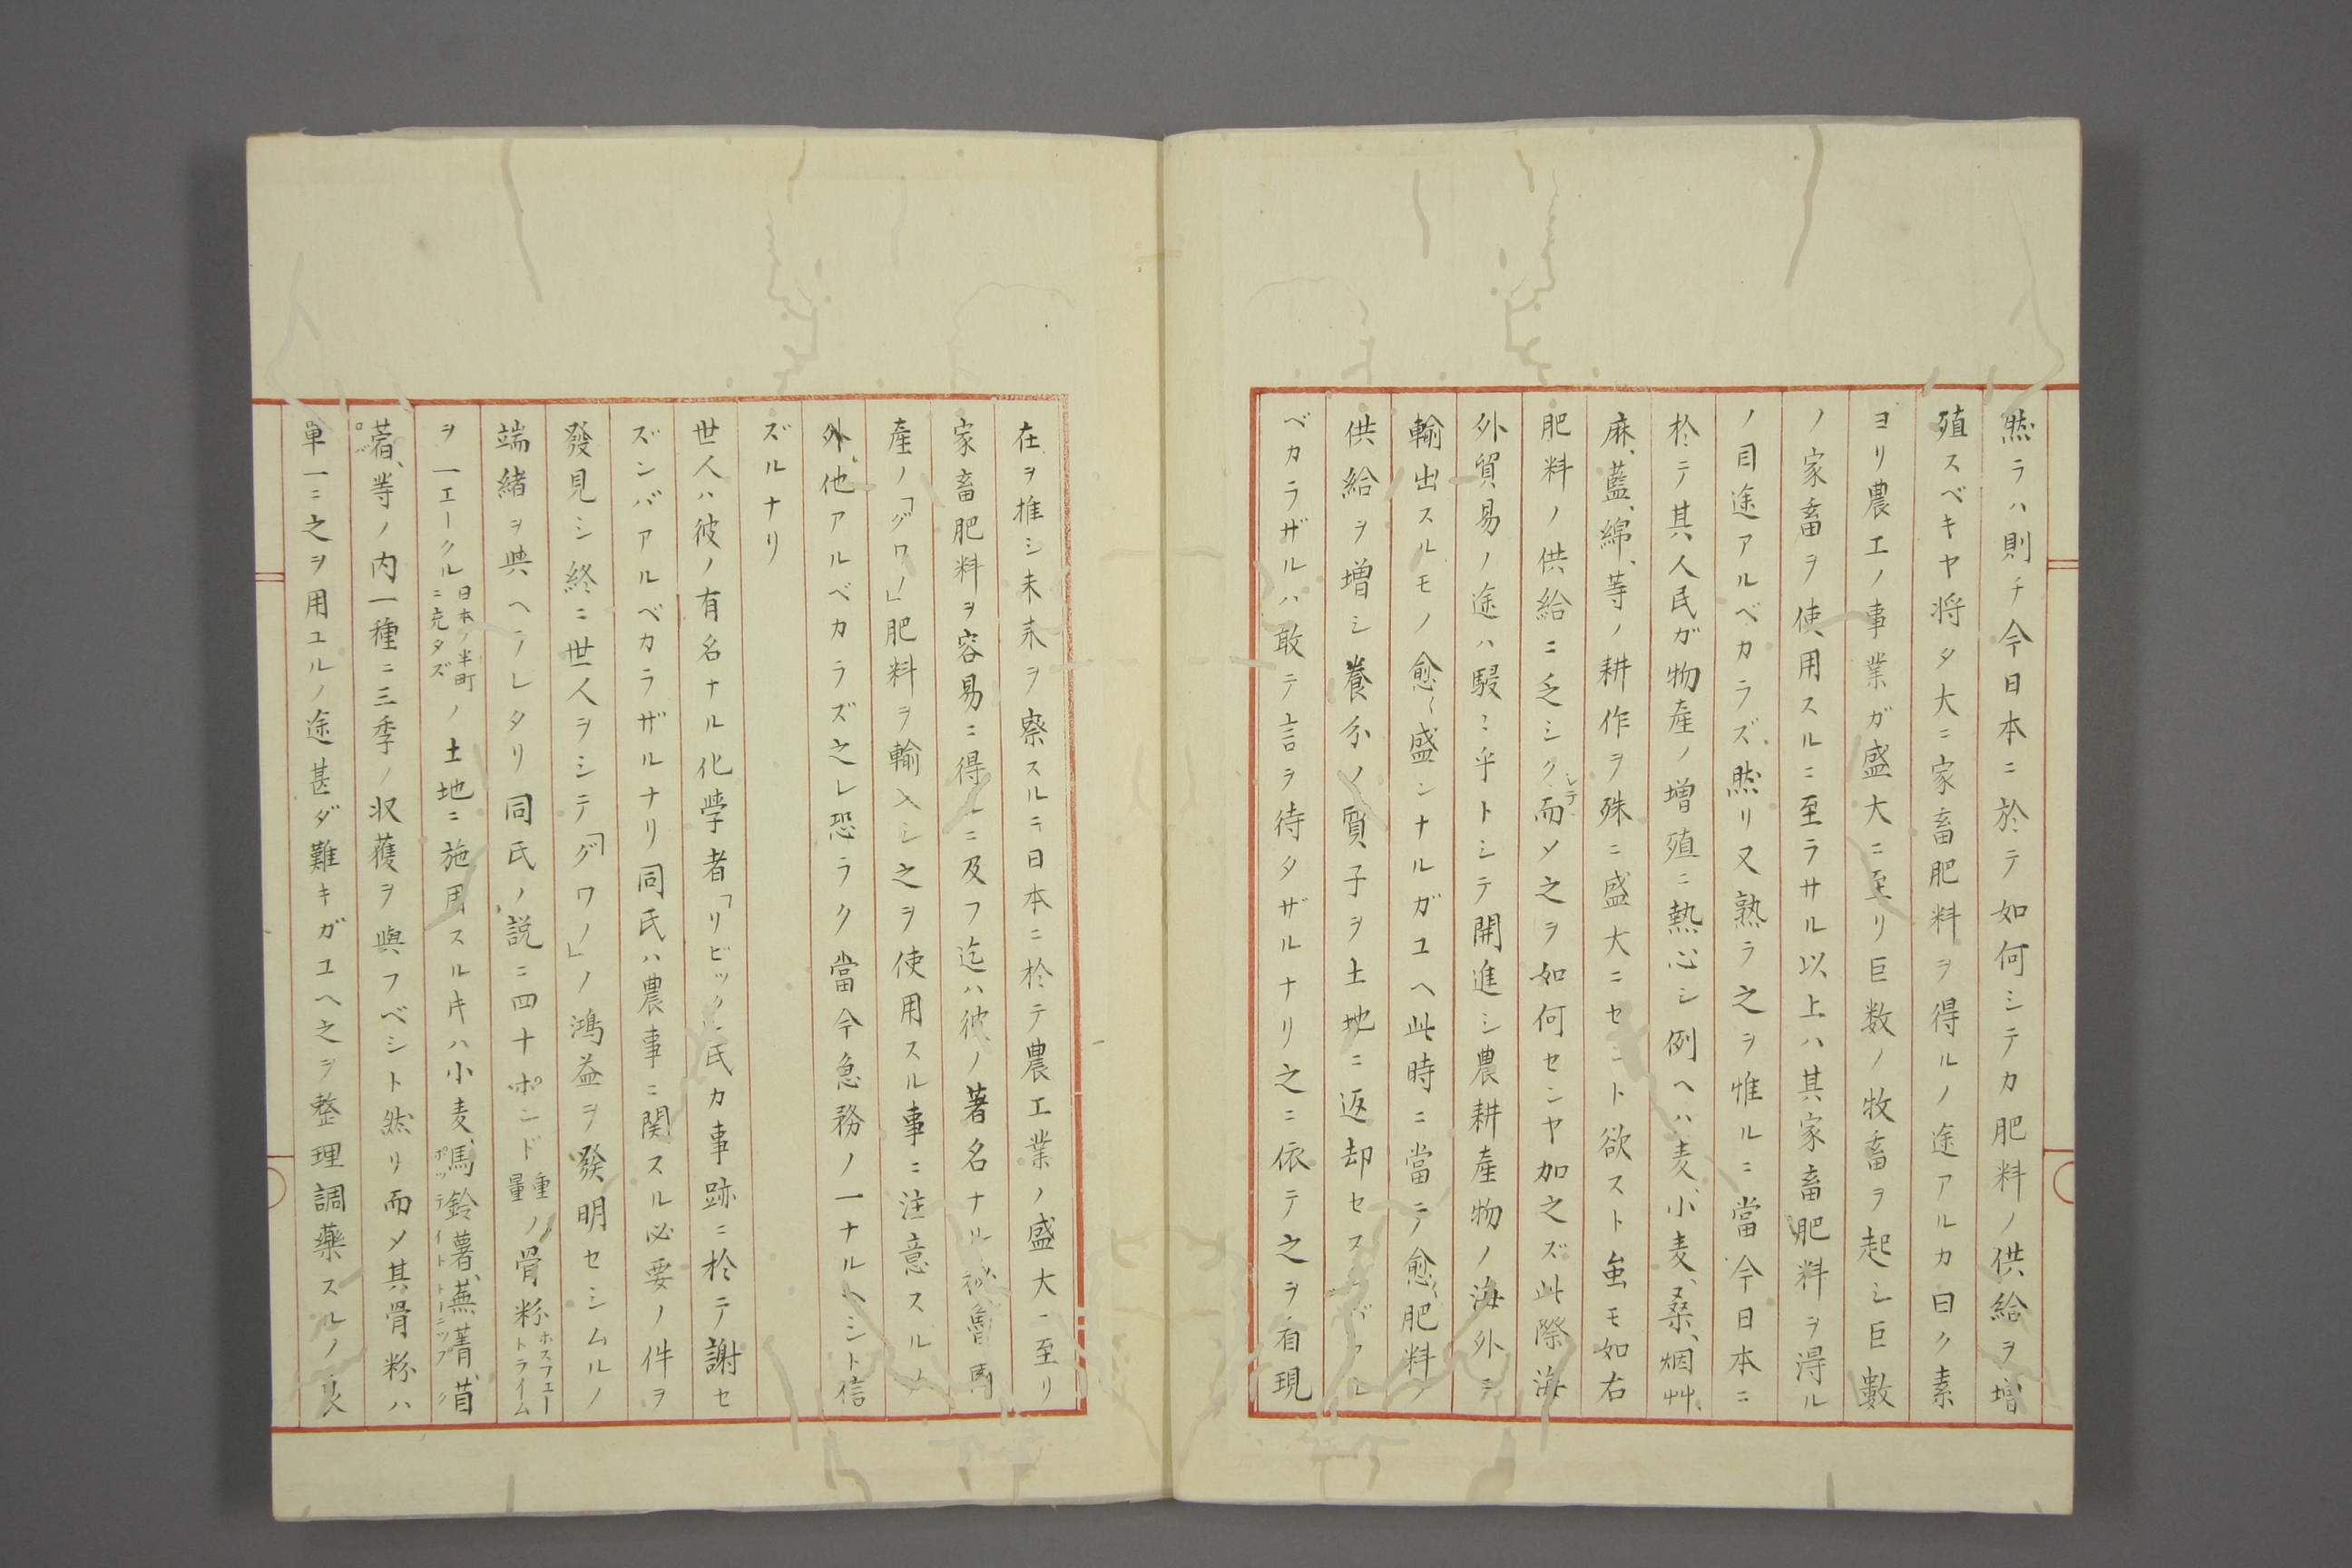 然ラハ則チ今日本ニ於テ如何シテカ肥料ノ供給ヲ増
殖スベキヤ将タ大ニ家畜肥料ヲ得ルノ途アルカ曰ク素
ヨリ農工ノ事業ガ盛大ニ至リ巨数ノ牧畜ヲ起シ巨數
ノ家畜ヲ使用スルニ至ラサル以上ハ其家畜肥料ヲ得ル
ノ目途アルベカラズ然リ又熟ラ之ヲ惟ルニ當今日本ニ
於テ其人民ガ物産ノ増殖ニ熱心シ例ヘハ麦、小麦、桑、烟艸、
麻、藍、綿、等ノ耕作ヲ殊ニ盛大ニセント欲スト雖モ如右
肥料ノ供給ニ乏シク而シテメ之ヲ如何センヤ加之ズ此際海
外貿易ノ途ハ駸々乎トシテ開進シ農耕産物ノ海外ニ
輸出スルモノ愈〻盛ンナルガユヘ此時ニ當テ愈〻肥料ノ
供給ヲ増シ養分ノ質子ヲ土地ニ返却セスンバアル
ベカラザルハ敢テ言ヲ待タザルナリ之ニ依テ之ヲ看現
在ヲ推シ未来ヲ察スルニ日本ニ於テ農工業ノ盛大ニ至リ
家畜肥料ヲ容易ニ得ルニ及フ迄ハ彼ノ著名ナル秘魯國
産ノ「グワノ」肥料ヲ輸入シ之ヲ使用スル事ニ注意スルノ
外、他アルベカラズ之レ恐ラク當今急務ノ一ナルヘシト信
ズルナリ
世人ハ彼ノ有名ナル化學者「リビツク」氏カ事跡ニ於テ謝セ
ズンバアルベカラザルナリ同氏ハ農事ニ関スル必要ノ件ヲ
發見シ終ニ世人ヲシテ「グワノ」ノ鴻益ヲ發明セシムルノ
端緒ヲ與ヘラレタリ同氏ノ説ニ四十ポンド重量ノ骨粉ホスフェートライム
ヲ一エークル日本ノ半町ニ充タズノ土地ニ施用スル片ハ小麦、馬鈴薯ポッテイト、蕪菁トーニップ、苜ク
蓿ロブ、等ノ内一種ニ三季ノ収獲ヲ與フベシト然リ而メ其骨粉ハ
単一ニ之ヲ用ユルノ途甚ダ難キガユヘ之ヲ整理調藥スルノ良